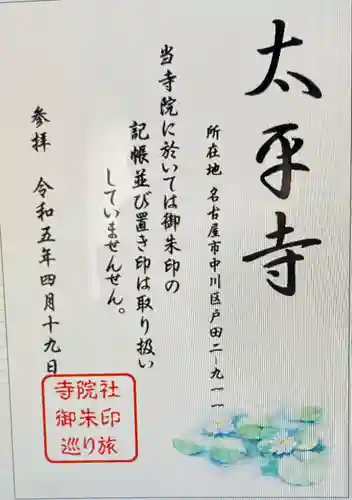 太平寺
所在地 名古屋市中川区戸田二ー九一一
当寺院に於いては御朱印の
記帳並び置き印は取り扱い
していませんせん。
参拝 令和五年四月十九日
寺院社
御朱印
巡り旅